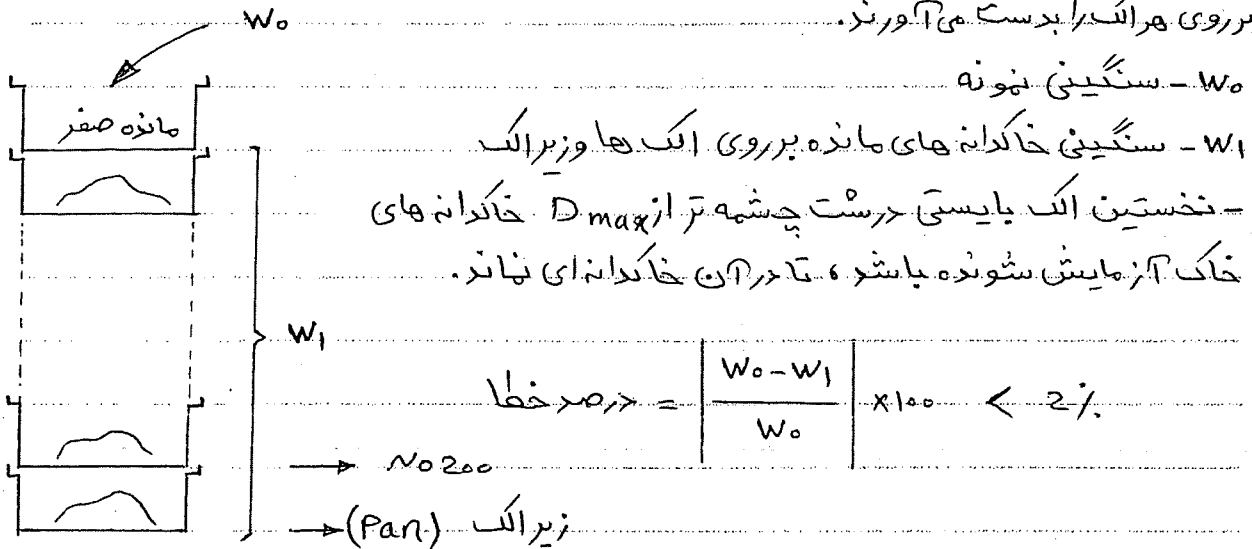 برروی هر الک را بدست می آورند.
W₀
W₀ - سنگینی نمونه
مانده صفر
W₁ - سنگینی خاکدانه های مانده برروی الک ها و زیر الک
- نخستین الک بایستی درشت چشمه تر از Dmax خاکدانه های
خاک آزمایش شونده باشد، تا در آن خاکدانه ای نماند.
W₁
درصد خطا = | (W₀ - W₁) / W₀ | × 100 < 2%
→ No 200
→ (Pan) زیر الک